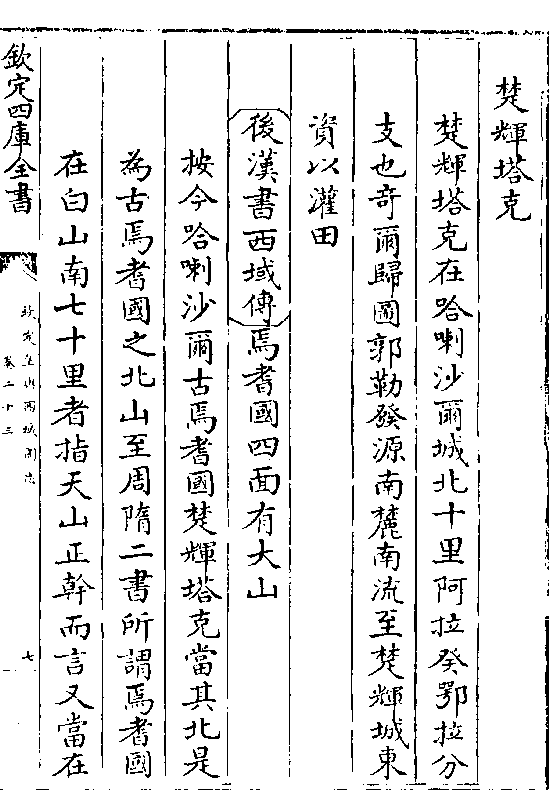 楚輝塔克
楚輝塔克在哈喇沙爾城北十里阿拉癸鄂拉分
支也竒爾歸圖郭勒發源南麓南流至楚輝城東
資以灌田
後漢書西域傳焉耆國四面有大山
按今哈喇沙爾古焉耆國楚輝塔克當其北是
為古焉耆國之北山至周隋二書所謂焉耆國
在白山南七十里者指天山正幹而言又當在
欽定四庫全書
欽定皇輿西域圖志
卷二十三
七